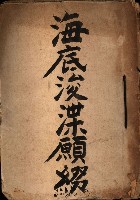 海底浚渫願綴